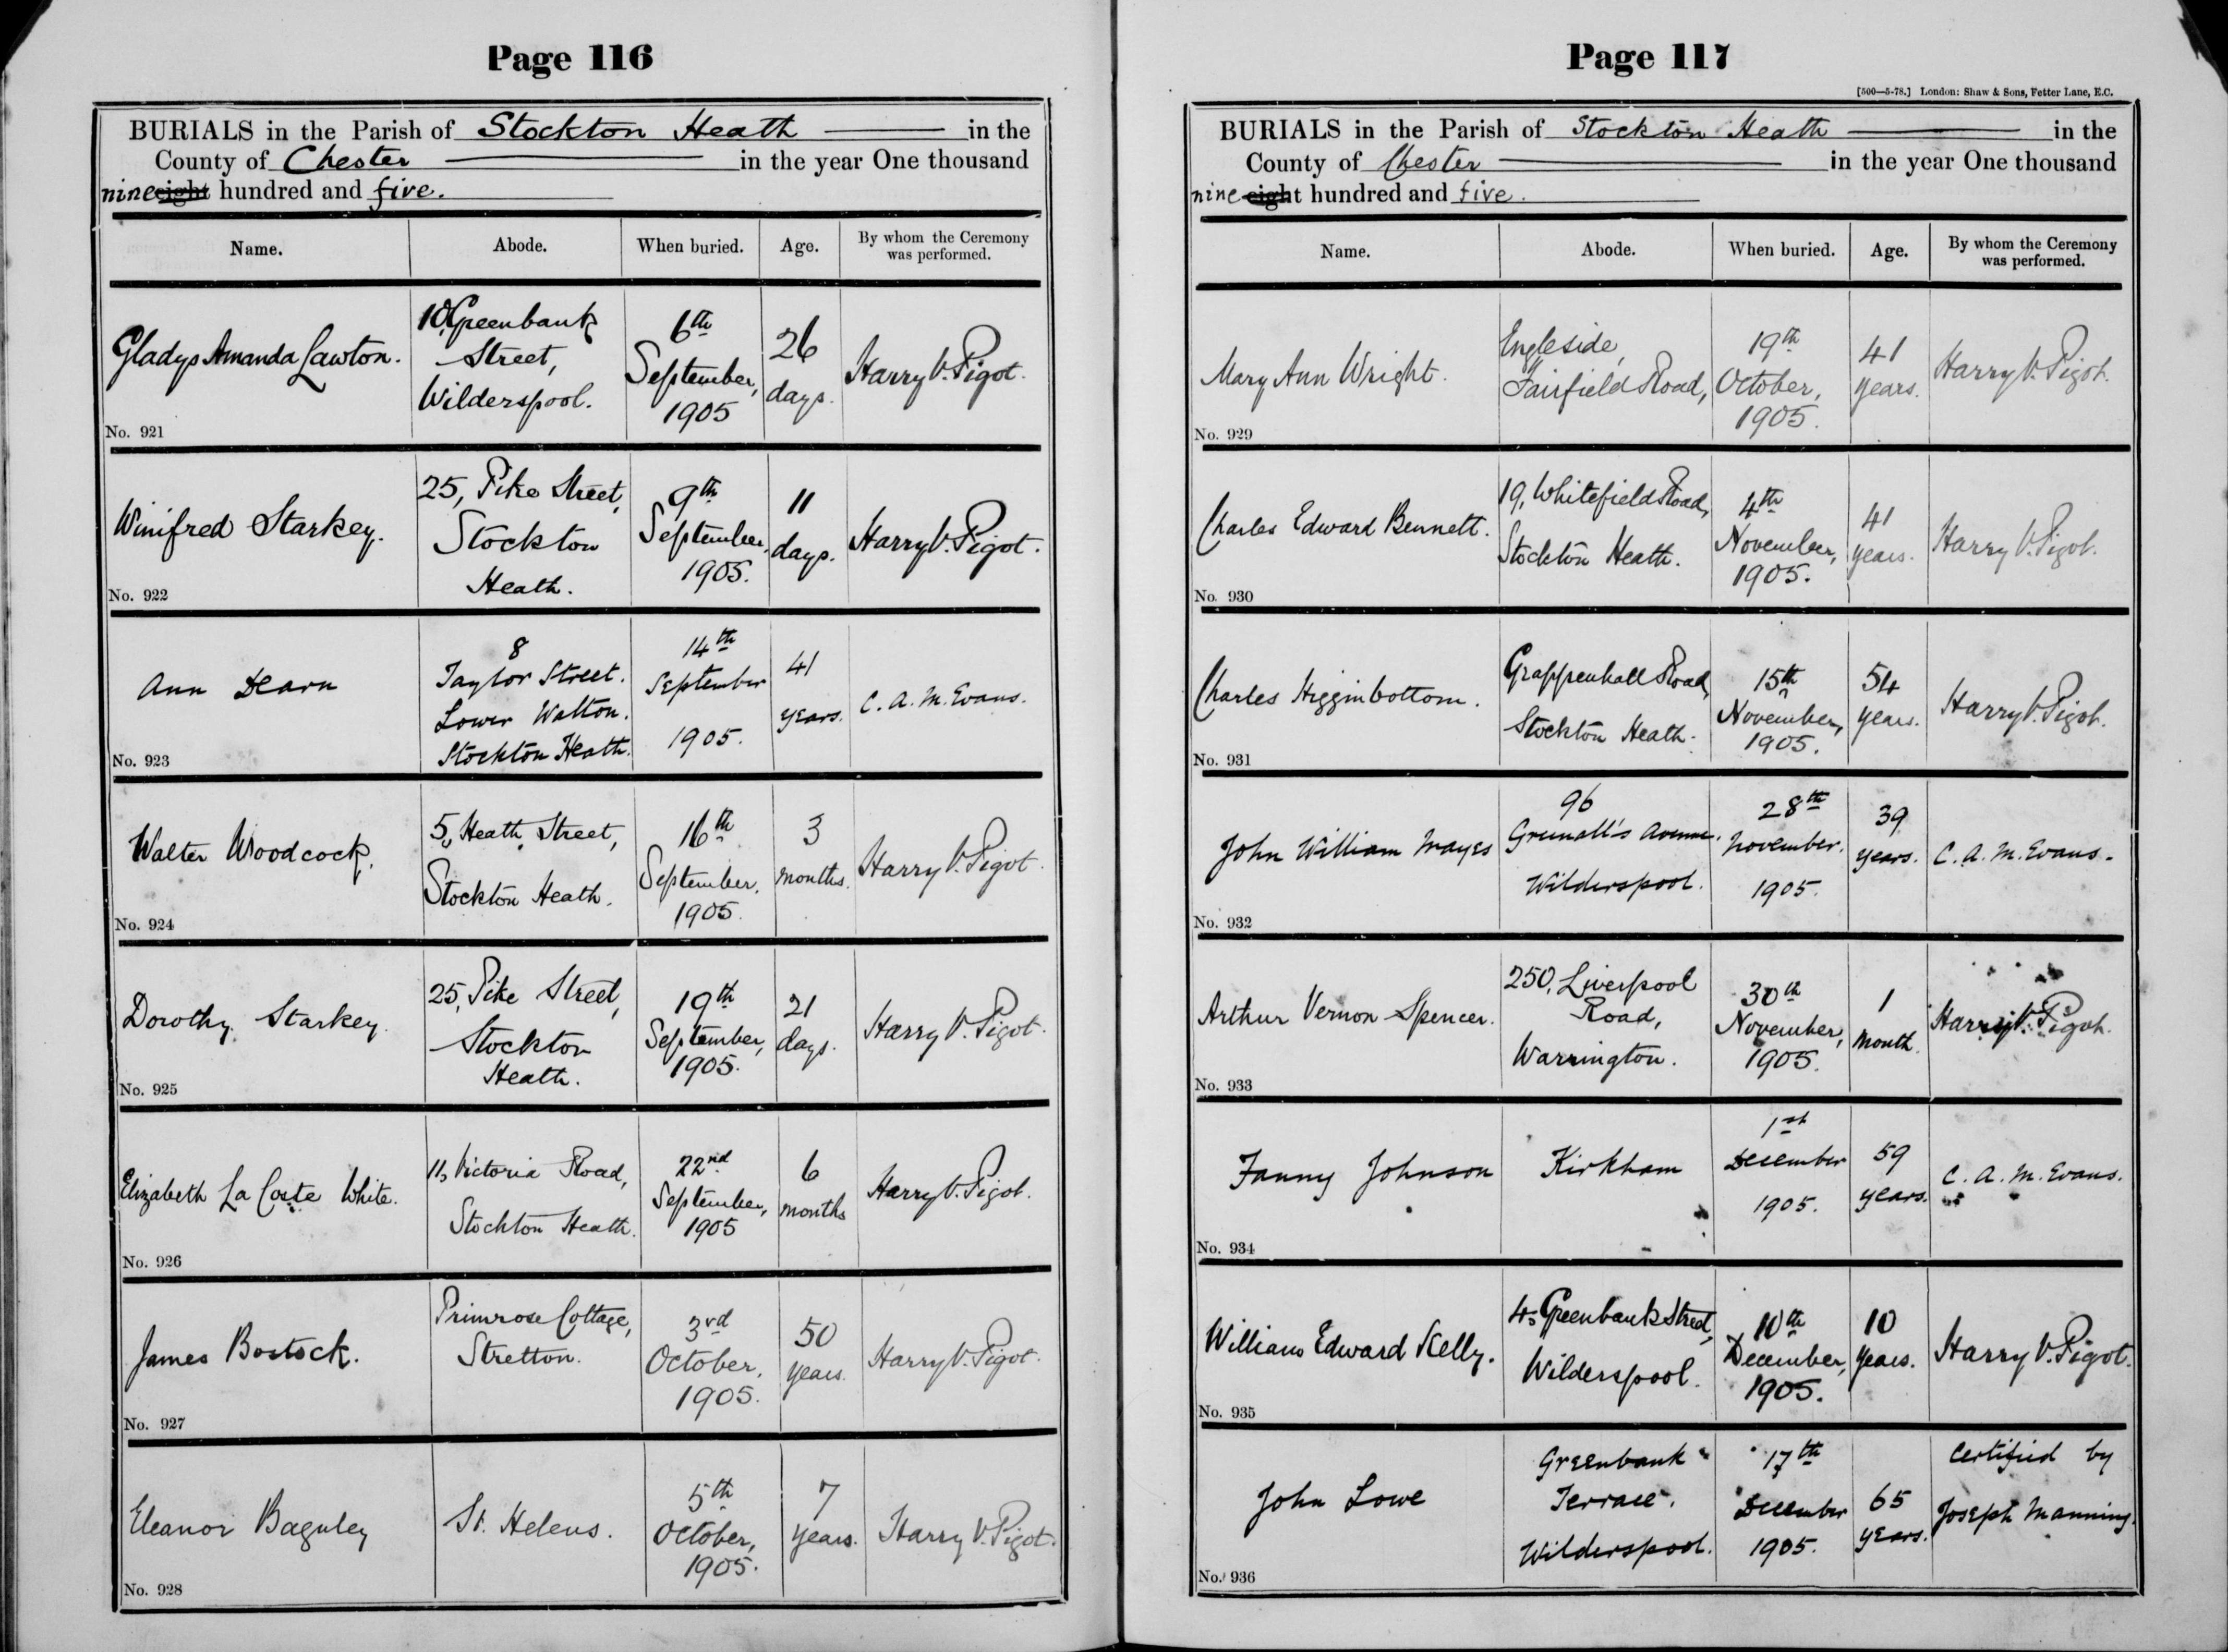 Page 116
BURIALS in the Parish of Stockton Heath in the
County of Chester in the year One thousand
nine eight hundred and five.
Name. Abode. When buried. Age. By whom the Ceremony was performed.
Gladys Amanda Lawton.
No. 921
10, Greenbank
Street,
Wilderspool.
6th
September,
1905
26
days.
Harry V. Pigot.
Winifred Starkey.
No. 922
25, Pike Street,
Stockton
Heath.
9th
September,
1905.
11
days.
Harry V. Pigot.
Ann Dearn
No. 923
8
Taylor Street.
Lower Walton.
Stockton Heath.
14th
September
1905.
41
years.
C. A. M. Evans.
Walter Woodcock.
No. 924
5, Heath Street,
Stockton Heath.
16th
September,
1905.
3
months.
Harry V. Pigot.
Dorothy Starkey.
No. 925
25, Pike Street,
Stockton
Heath.
19th
September,
1905.
21
days.
Harry V. Pigot.
Elizabeth La Coste White.
No. 926
11, Victoria Road,
Stockton Heath.
22nd
September,
1905
6
months
Harry V. Pigot.
James Bostock.
No. 927
Primrose Cottage,
Stretton.
3rd
October,
1905.
50
years.
Harry V. Pigot.
Eleanor Baguley
No. 928
St. Helens.
5th
October,
1905.
7
years.
Harry V. Pigot.
Page 117
[500—5-78.] London: Shaw & Sons, Fetter Lane, E.C.
BURIALS in the Parish of Stockton Heath in the
County of Chester in the year One thousand
nine eight hundred and five.
Name. Abode. When buried. Age. By whom the Ceremony was performed.
Mary Ann Wright.
No. 929
Engleside,
Fairfield Road,
19th
October,
1905.
41
years.
Harry V. Pigot.
Charles Edward Bennett.
No. 930
19, Whitefield Road,
Stockton Heath.
4th
November,
1905.
41
years.
Harry V. Pigot.
Charles Higginbottom.
No. 931
Grappenhall Road,
Stockton Heath.
15th
November,
1905.
54
years.
Harry V. Pigot.
John William Mayes
No. 932
96
Greenall's Avenue.
Wilderspool.
28th
November.
1905.
39
years.
C. A. M. Evans.
Arthur Vernon Spencer.
No. 933
250, Liverpool
Road,
Warrington.
30th
November,
1905.
1
month.
Harry V. Pigot.
Fanny Johnson
No. 934
Kirkham
1st
December
1905.
59
years.
C. A. M. Evans.
William Edward Kelly.
No. 935
4, Greenbank Street,
Wilderspool.
10th
December,
1905.
10
years.
Harry V. Pigot.
John Lowe
No. 936
Greenbank
Terrace.
Wilderspool.
17th
December
1905.
65
years.
Certified by
Joseph Manning.